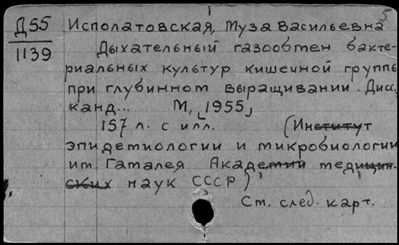 Д55 Исполатовская, Муза Васильевна
1139 Дыхательный газообмен бакте-
риальных культур кишечной группы
при глубинном выращивании. Дисс.
канд... М, 1955,
157 л. с илл. (Институт
эпидемиологии и микробиологии
им. Гамалея Академии медицин-
ских наук СССР)
См. след. карт.